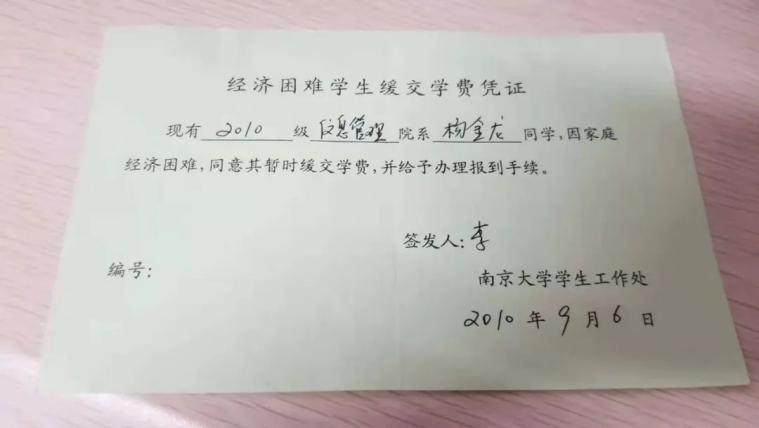 经济困难学生缓交学费凭证
现有 2010 级 信息管理 院系 杨金龙 同学,因家庭
经济困难,同意其暂时缓交学费,并给予办理报到手续。
签发人:李
编号:
南京大学学生工作处
2010 年 9 月 6 日